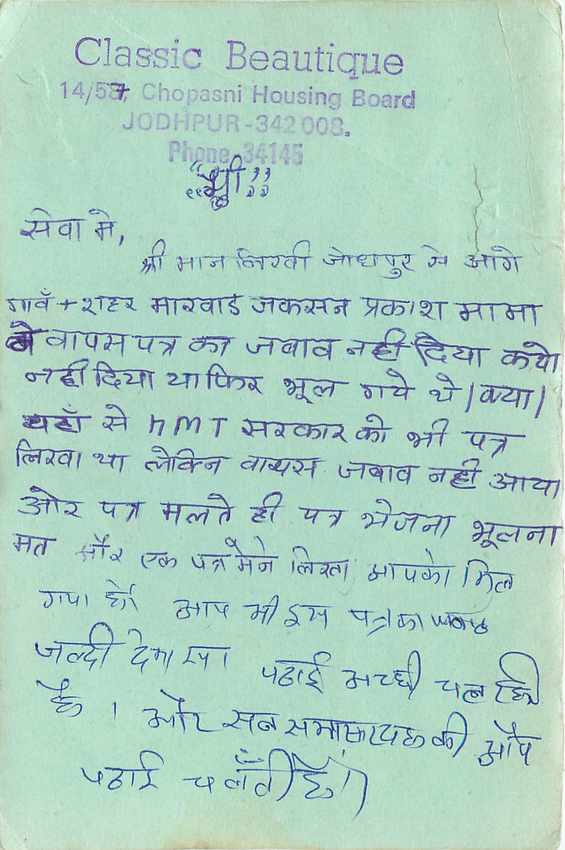 Classic Beautique
14/57, Chopasni Housing Board
JODHPUR-342 008.
Phone 34145
"श्री"
सेवा मे,
श्री मान लिखी जोधपुर से आगे
गावँ + शहर मारवाड जकसन प्रकाश मामा
ने वापस पत्र का जवाव नही दिया कयो
नही दिया या फिर भूल गये थे | क्या |
यहाँ से HMT सरकार को भी पत्र
लिखा था लेकिन वापस जवाव नही आया
ओर पत्र मलते ही पत्र भेजना भूलना
मत और एक पत्र मैने लिखा आपको मिल
गया है आप भी इस पत्र का
जल्दी देना पढाई अच्छी चल रही
है । और सब की
पढाई